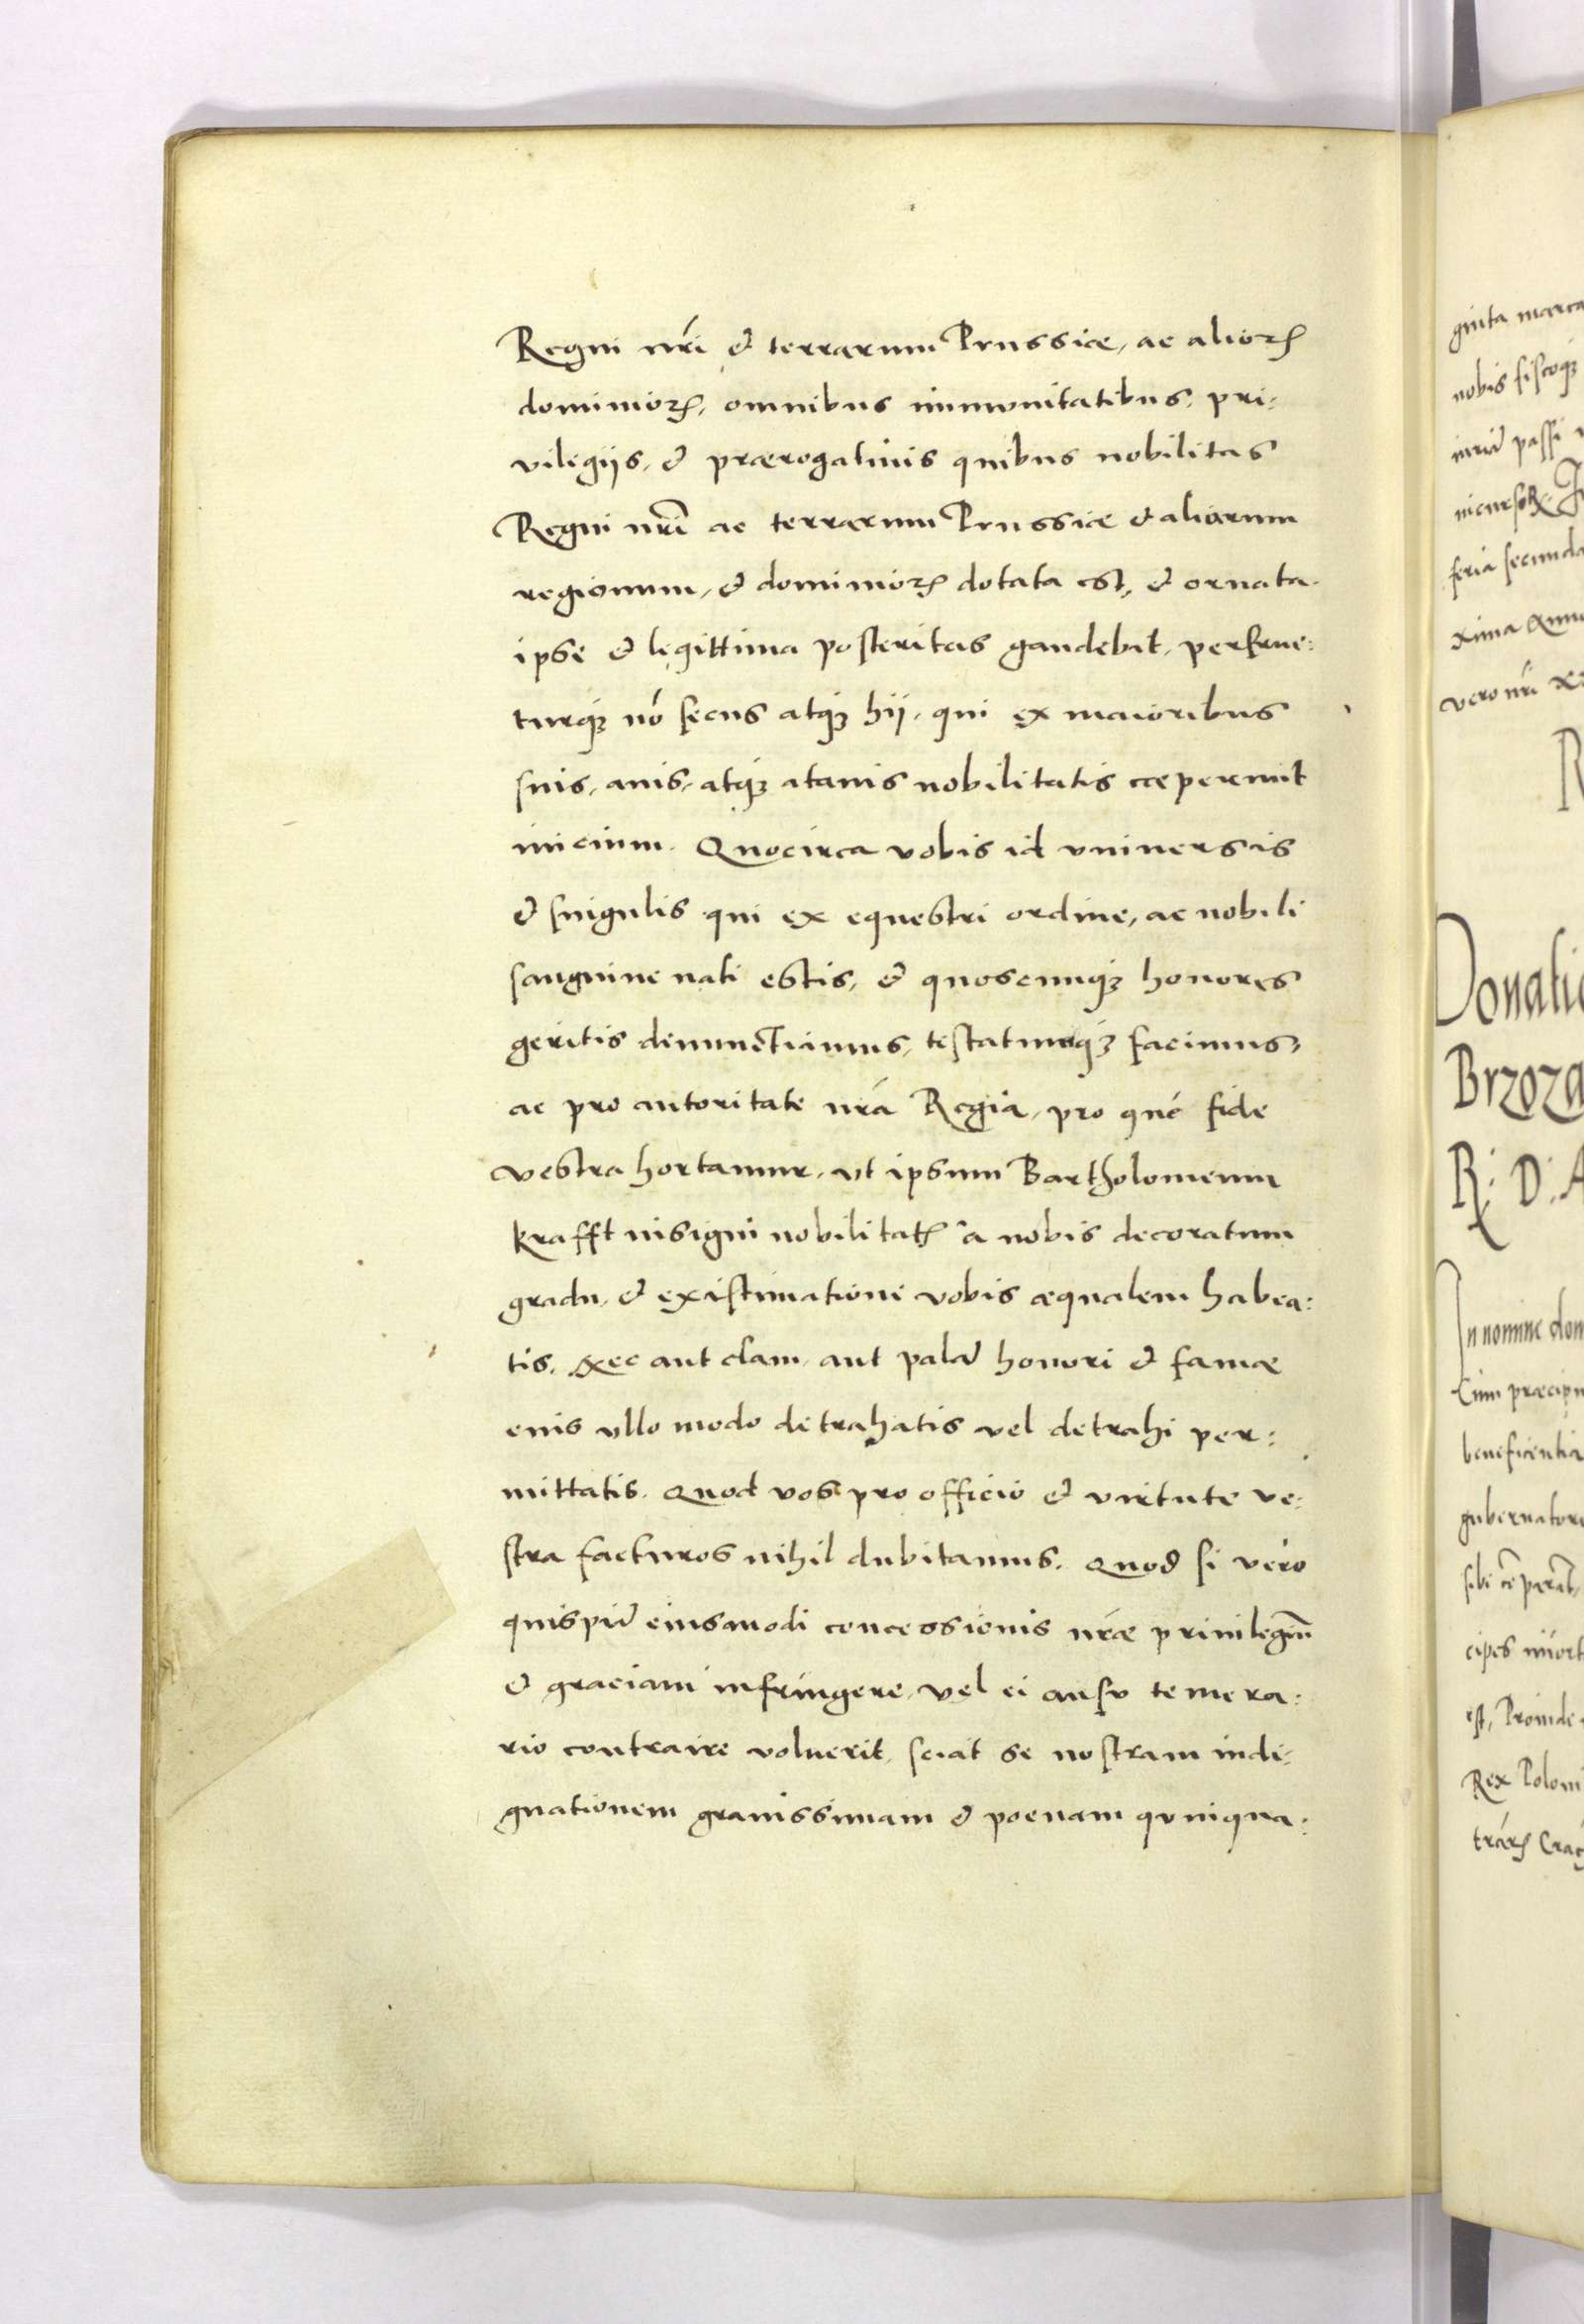 Regni nr̃i & terrarum Prussiæ, ac alioꝝ
dominioꝝ, omnibus immunitatibus, pri:
viligijs, & prærogativis quibus nobilitas
Regni nr̃i ac terrarum Prussiæ & aliarum
regionum, & dominioꝝ dotata est, & ornata.
ipse & legittima posteritas gaudebit, perfrue:
turqꝫ nõ secus atqꝫ hij, qui ex maioribus
suis, auis, atqꝫ atauis nobilitatis cœperunt
inicium. Quocirca vobis id vniuersis
& singulis qui ex equestri ordine, ac nobili
sanguine nati estis, & quoscunqꝫ honores
geritis denunctiamus, testatumqꝫ facimus,
ac pro autoritate nr̃a Regia, pro qué fide
vestra hortamur, vt ipsum Bartholomeum
krafft insigni nobilitatꝭ a nobis decoratum
gradu, & existimationi vobis æqualem habea:
tis. Nec aut clam, aut palã honori & famæ
euis vllo modo detrahatis vel detrahi per:
mittatis. Quod vos pro officio & virtute ve:
stra facturos nihil dubitamus. Quod si vero
quispiã eiusmodi concessionis nr̃æ priuilegiũ
& graciam infringere, vel ei ausu temera:
rio contraire voluerit, sciat se nostram indi:
gnationem grauissimam & poenam quniqua:
ginta marca
nobis fiscoqꝫ
iniuriã passi
feria secunda
xima Anno
vero nr̃i
R
Donatio
Brzoza
R: D: A
In nomine dom
Cum præcipu
beneficentia
gubernatore
sibi cõparãt,
cipes
est, Proinde
Rex Poloni
trãꝝ Crac